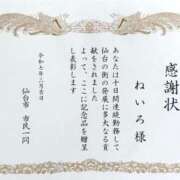 感謝状
ねいろ様
あなたは十日間連続勤務して
仙台の街の発展に多大なる貢
献をされました
よって、ここに記念品を贈呈
し表彰します
令和七年六月吉日
仙台市 市民一同